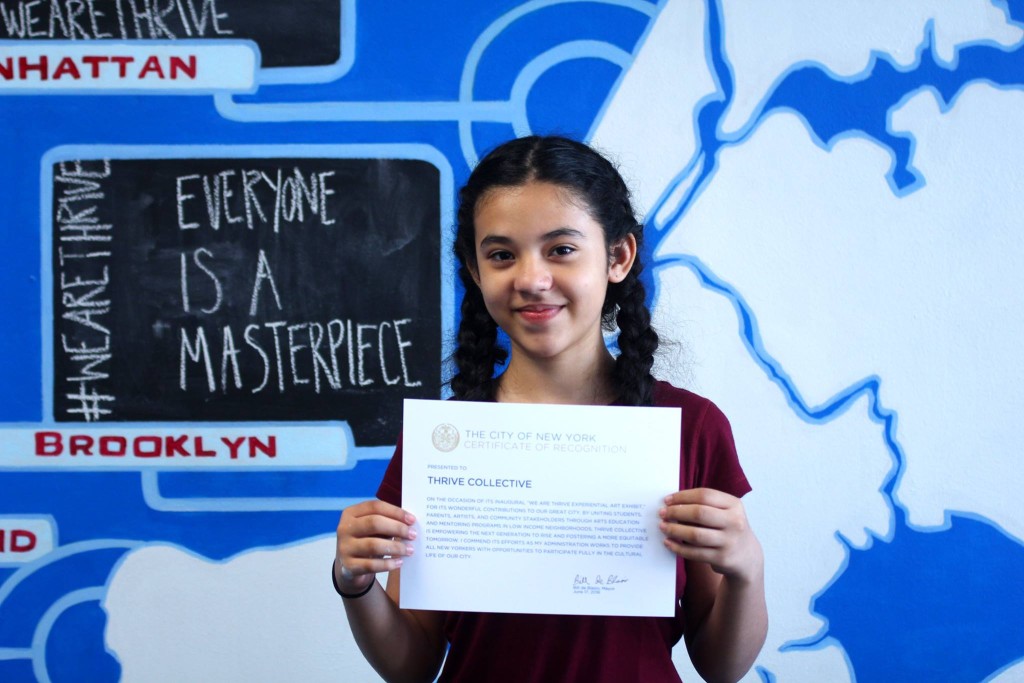 WEARETHRIVE
NHATTAN
#WEARETHRIVE
EVERYONE
IS A
MASTERPIECE
BROOKLYN
ND
THE CITY OF NEW YORK
CERTIFICATE OF RECOGNITION
PRESENTED TO
THRIVE COLLECTIVE
ON THE OCCASION OF ITS INAUGURAL "WE ARE THRIVE EXPERIENTIAL ART EXHIBIT,"
FOR ITS WONDERFUL CONTRIBUTIONS TO OUR GREAT CITY. BY UNITING STUDENTS,
PARENTS, ARTISTS, AND COMMUNITY STAKEHOLDERS THROUGH ARTS EDUCATION
AND MENTORING PROGRAMS IN LOW INCOME NEIGHBORHOODS, THRIVE COLLECTIVE
IS EMPOWERING THE NEXT GENERATION TO RISE AND FOSTERING A MORE EQUITABLE
TOMORROW. I COMMEND ITS EFFORTS AS MY ADMINISTRATION WORKS TO PROVIDE
ALL NEW YORKERS WITH OPPORTUNITIES TO PARTICIPATE FULLY IN THE CULTURAL
LIFE OF OUR CITY.
Bill de Blasio
Bill de Blasio, Mayor